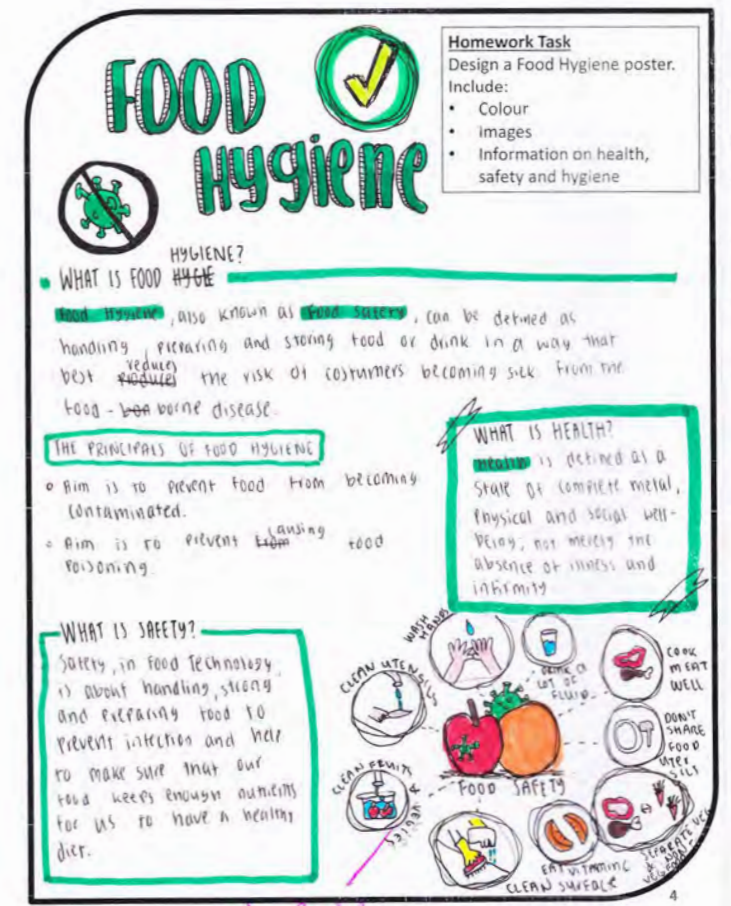 FOOD
Hygiene
Homework Task
Design a Food Hygiene poster.
Include:
• Colour
• images
• Information on health,
safety and hygiene
HYGIENE?
WHAT IS FOOD HYGIE
Food Hygiene, also known as Food Safety, can be defined as
handling, preparing and storing food or drink in a way that
reduces
best produces the risk of costumers becoming sick from the
food - bon borne disease.
THE PRINCIPALS OF FOOD HYGIENE
Aim is to prevent food from becoming
contaminated.
causing
Aim is to prevent from food
poisoning.
WHAT IS HEALTH?
Health is defined as a
state of complete metal,
physical and social well-
being, not merely the
absence of illness and
infirmity
WHAT IS SAFETY?
Safety, in Food Technology,
is about handling, strong
and preparing food to
prevent infection and help
to make sure that our
food keeps enough nutrients
for us to have a healthy
diet.
WASH
HANDS
DRINK A
LOT OF
FLUID
COOK
MEAT
WELL
DON'T
SHARE
FOOD
UTEN
SILS
SEPARATE VEG
& NON
EAT VITAMIN C
CLEAN SURFACE
CLEAN FRUITS &
VEGGIES
CLEAN UTENSILS
FOOD SAFETY
4